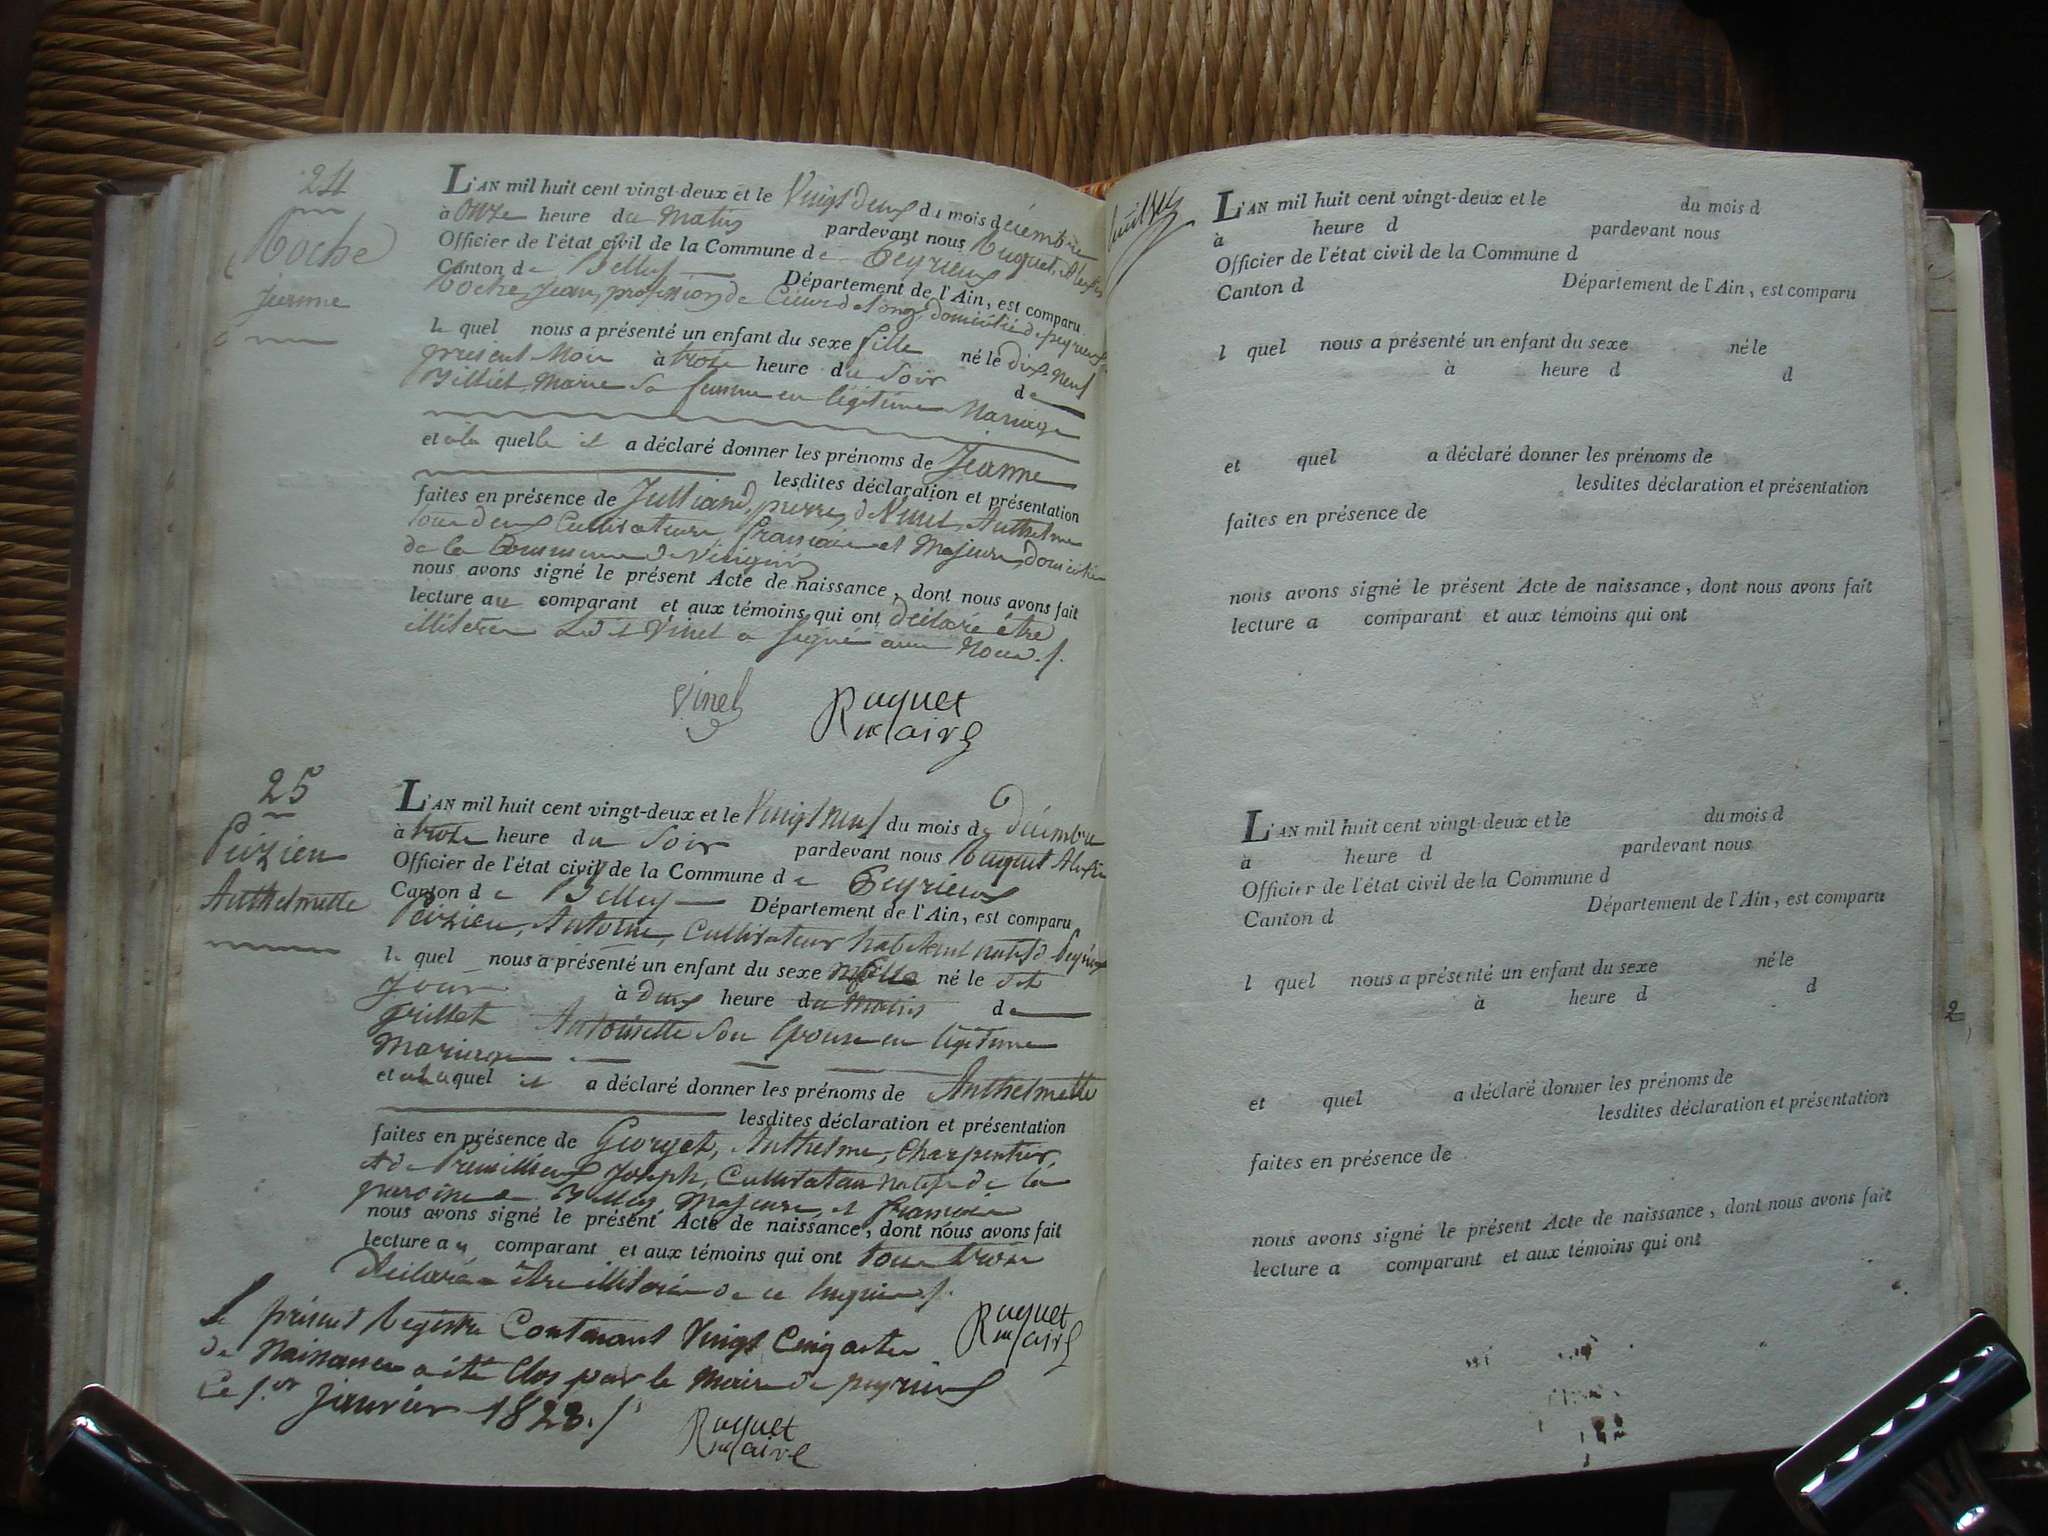 24
Roche
Jeanne
L'AN mil huit cent vingt-deux et le Vingt deux du mois d décembre
à onze heure du Matin pardevant nous Ruquet, Alexis
Officier de l'état civil de la Commune de Peyrieux
Canton de Belley Département de l'Ain, est comparu
Roche, Jean, profession de domicilié de peyrieux
le quel nous a présenté un enfant du sexe fille né le dix-neuf
présent Mois à trois heure du Soir de
Billiet, Marie sa femme en légitime Mariage
et a la quelle il a déclaré donner les prénoms de Jeanne
lesdites déclaration et présentation
faites en présence de Julliand, pierre, de Vinel, Anthelme
tous deux Cultivateurs, français et Majeurs, domiciliés
de la Commune de Virignin
nous avons signé le présent Acte de naissance, dont nous avons fait
lecture au comparant et aux témoins qui ont déclaré être
illiterés Led.t Vinel a signé avec Nous ./.
Vinel
Ruquet
maire
25
Peizieu
Anthelmette
L'AN mil huit cent vingt-deux et le Vingt neuf du mois de décembre
à trois heure du Soir pardevant nous Ruquet Alexis
Officier de l'état civil de la Commune de Peyrieux
Canton de Belley Département de l'Ain, est comparu
Peizieu, Antoine, Cultivateur habitant natif d Peyrieux
le quel nous a présenté un enfant du sexe né le dit
Jour à deux heure du Matin de
Antoinette Son épouse en légitime
Mariage
et a la quel il a déclaré donner les prénoms de Anthelmette
lesdites déclaration et présentation
faites en présence de Georget, Anthelme, Charpentier,
et de Premillieux Joseph, Cultivateur natifs de la
paroisse de Belley Majeurs, et français
nous avons signé le présent Acte de naissance, dont nous avons fait
lecture au comparant et aux témoins qui ont tous trois
déclarés être illiterés de ce Enquis ./.
Ruquet
maire
Le présent Registre Contenant Vingt Cinq actes
de Naissance a été Clos par le Maire de peyrieux
Ce 1.er Janvier 1823 ./.
Ruquet
maire
L'AN mil huit cent vingt-deux et le du mois d
à heure d pardevant nous
Officier de l'état civil de la Commune d
Canton d Département de l'Ain, est comparu
l quel nous a présenté un enfant du sexe né le
à heure d d
et quel a déclaré donner les prénoms de
lesdites déclaration et présentation
faites en présence de
nous avons signé le présent Acte de naissance, dont nous avons fait
lecture a comparant et aux témoins qui ont
L'AN mil huit cent vingt-deux et le du mois d
à heure d pardevant nous
Officier de l'état civil de la Commune d
Canton d Département de l'Ain, est comparu
l quel nous a présenté un enfant du sexe né le
à heure d d
et quel a déclaré donner les prénoms de
lesdites déclaration et présentation
faites en présence de
nous avons signé le présent Acte de naissance, dont nous avons fait
lecture a comparant et aux témoins qui ont
2